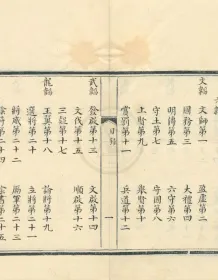 文韜 文師第一 盈虛第二
國務第三 大禮第四
明傳第五 六守第六
守土第七 守國第八
上賢第九 舉賢第十
賞罰第十一 兵道第十二
目錄 一
武韜 發啟第十三 文啟第十四
文伐第十五 順啟第十六
三疑第十七
龍韜 王翼第十八 論將第十九
選將第二十 立將第二十一
將威第二十二 勵軍第二十三
陰符第二十四 陰書第二十五